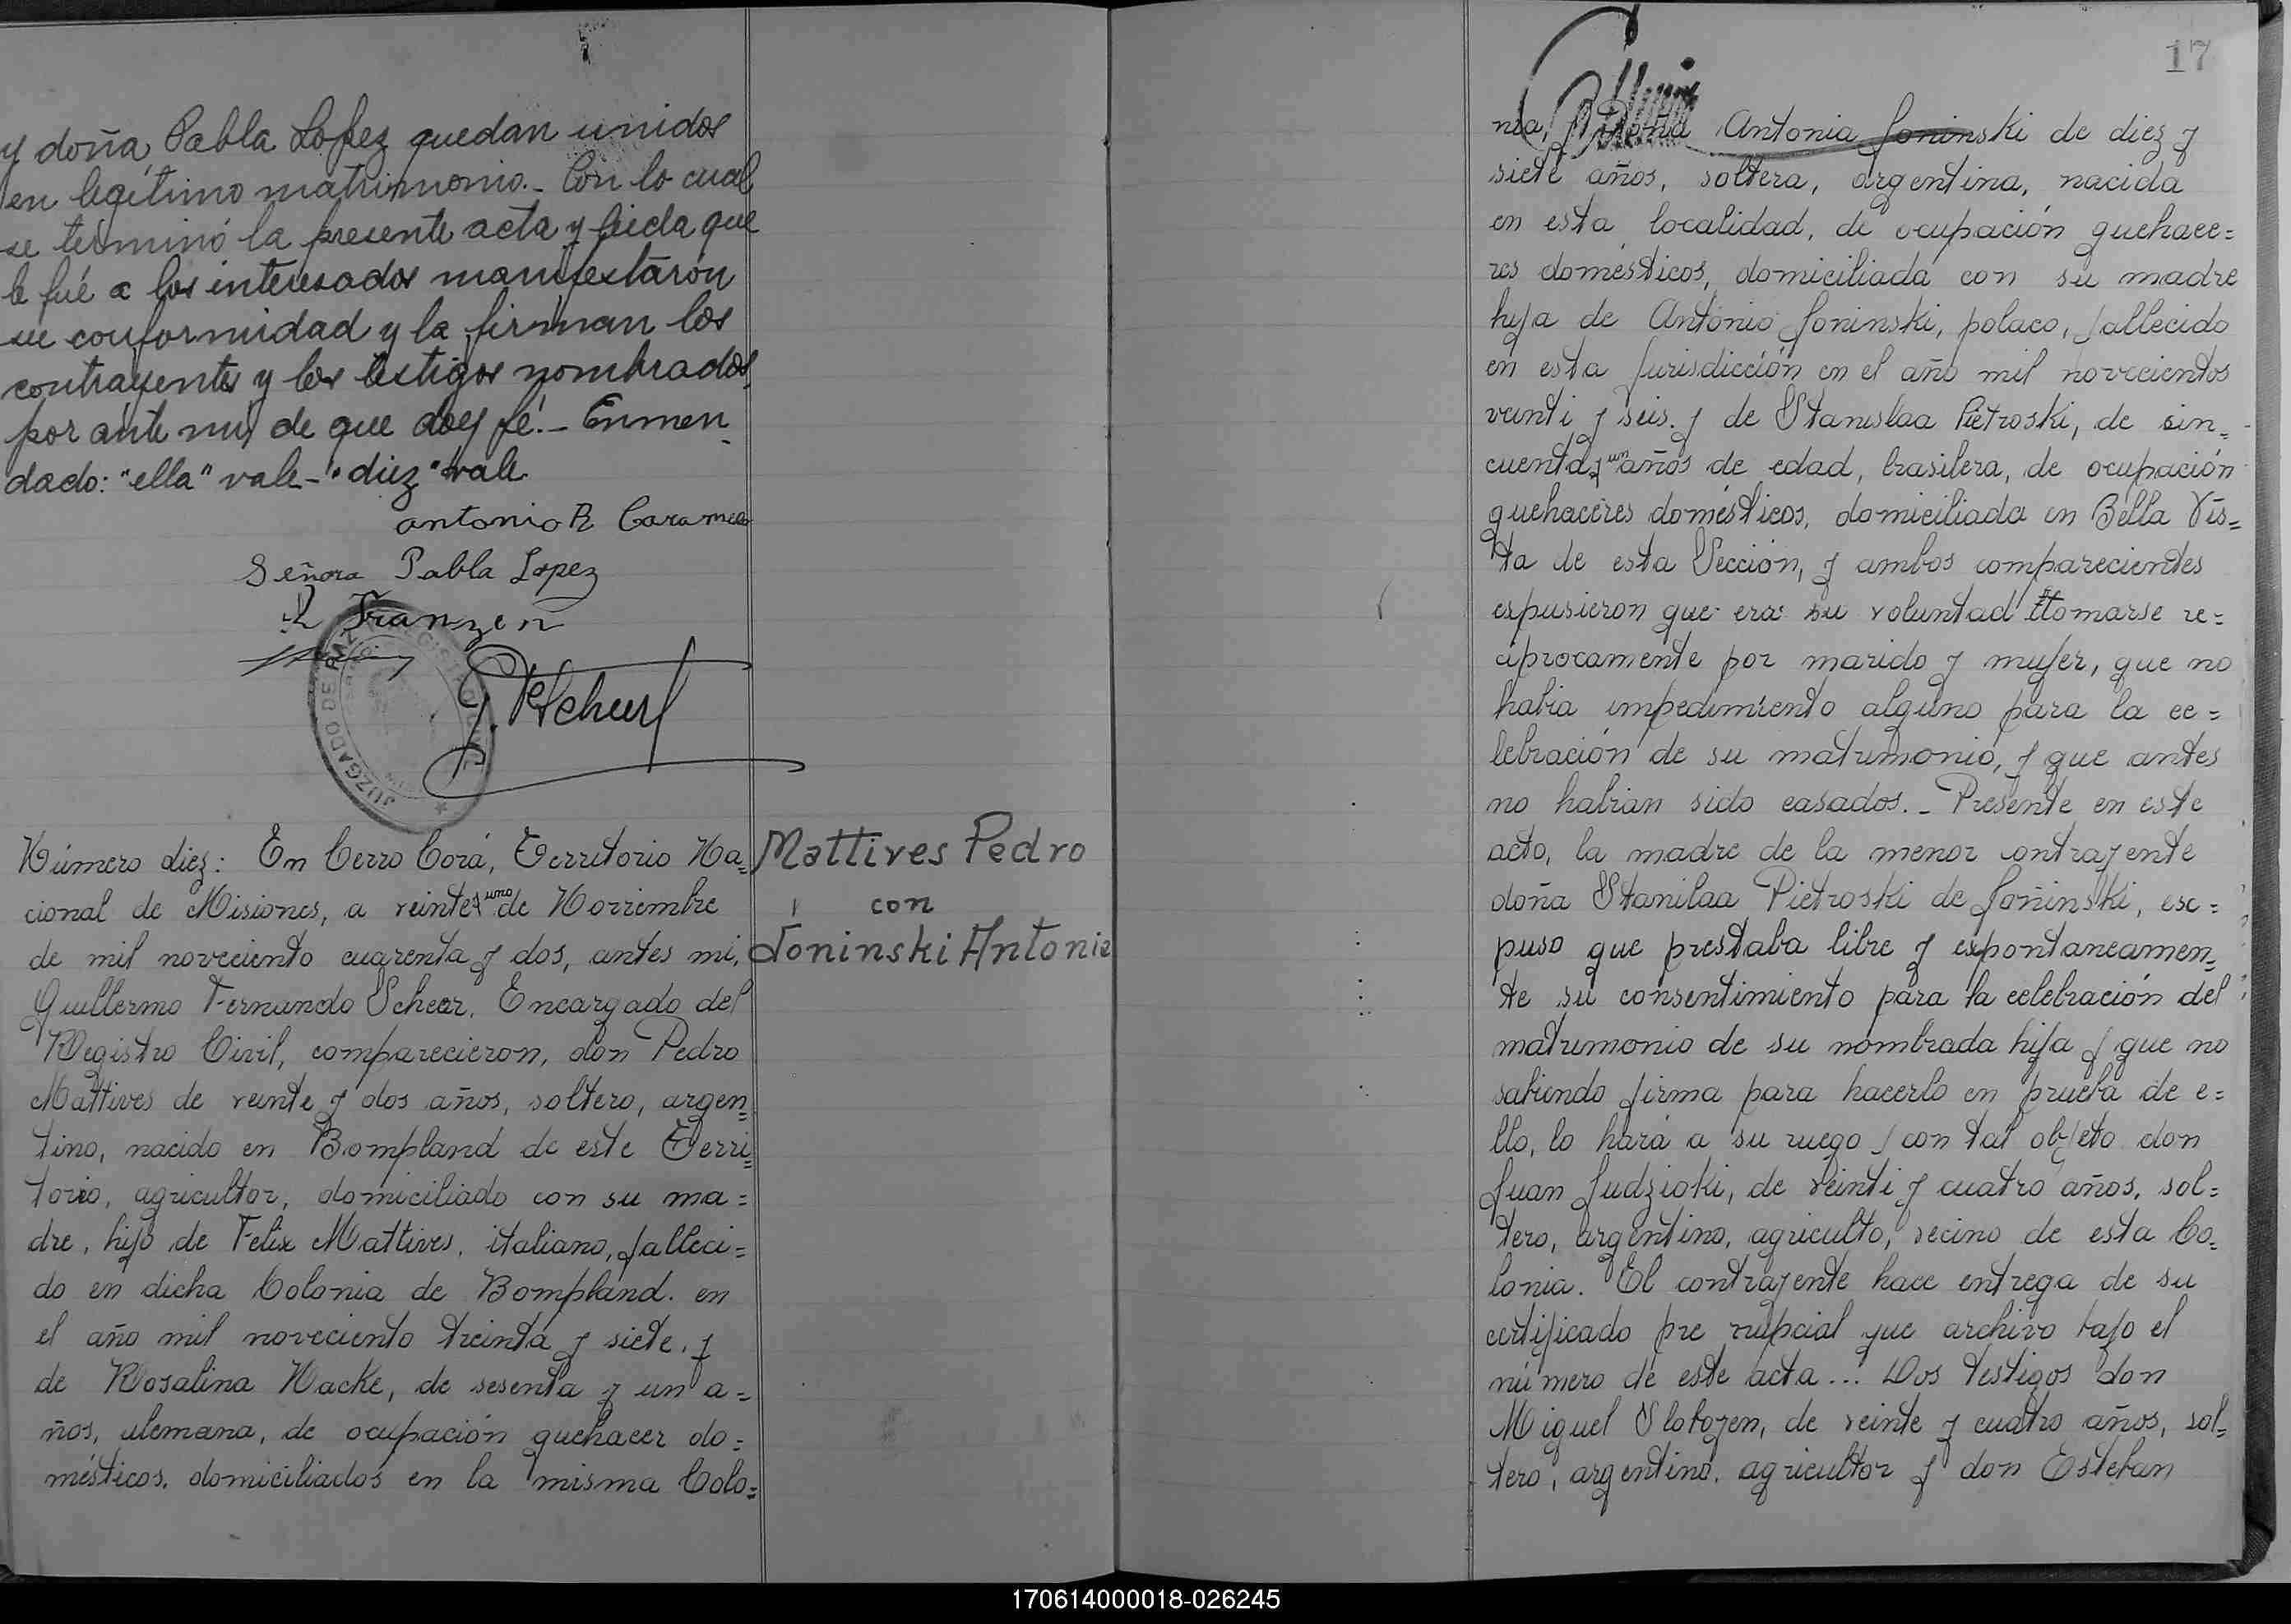 y doña Pabla Lopez quedan unidos
en legítimo matrimonio.- Con lo cual
se terminó la presente acta y leida que
le fué a los interesados manifestarón
su conformidad y la firman los
contrayentes y los testigos nombrados,
por ánte mí, de que doy fé.- Enmen-
dado: "ella" vale-"diez" vale.
antonio R
Señora Pabla Lopez
Franzen
JUZGADO DE PAZ
Número diez: En Cerro Corá, Territorio Na=
cional de Misiones, a veinte y uno de Noviembre
de mil noveciento cuarenta y dos, antes mi,
Guillermo Fernando Scheer, Encargado del
Registro Civil, comparecieron, don Pedro
Mattives de veinte y dos años, soltero, argen=
tino, nacido en Bompland de este Terri=
torio, agricultor, domiciliado con su ma=
dre, hijo de Felix Mattives, italiano, falleci=
do en dicha Colonia de Bompland. en
el año mil noveciento treinta y siete, y
de Rosalina Hacke, de sesenta y un a=
ños, alemana, de ocupación quehacer do=
mésticos, domiciliados en la misma Colo=
Mattives Pedro
con
Joninski Antonia
17
nia, Antonia Joninski de diez y
siete años, soltera, argentina, nacida
en esta localidad, de ocupación quehace=
res domésticos, domiciliada con su madre
hija de Antonio Joninski, polaco, fallecido
en esta Jurisdicción en el año mil novecientos
veinti y seis y de Stanislaa Pietroski, de sin=
cuenta y un años de edad, brasilera, de ocupación
quehaceres domésticos, domiciliada en Bella Vis=
ta de esta Sección, y ambos comparecientes
expusieron que era su voluntad tomarse re=
ciprocamente por marido y mujer, que no
habia impedimiento alguno para la ce=
lebración de su matrimonio, y que antes
no habian sido casados.- Presente en este
acto, la madre de la menor contrayente
doña Stanilaa Pietroski de Joñinski, esc=
puso que prestaba libre y expontaneamen=
te su consentimiento para la celebración del
matrimonio de su nombrada hija y que no
sabiendo firma para hacerlo en prueba de e=
llo, lo hará a su ruego y con tal objeto don
Juan Judzioki, de veinti y cuatro años, sol=
tero, argentino, agriculto, vecino de esta Co=
lonia. El contrayente hace entrega de su
certificado pre nupcial que archivo bajo el
número de este acta... Dos testigos don
Miguel Slobozen, de veinte y cuatro años, sol=
tero, argentino, agricultor y don Esteban
170614000018-026245